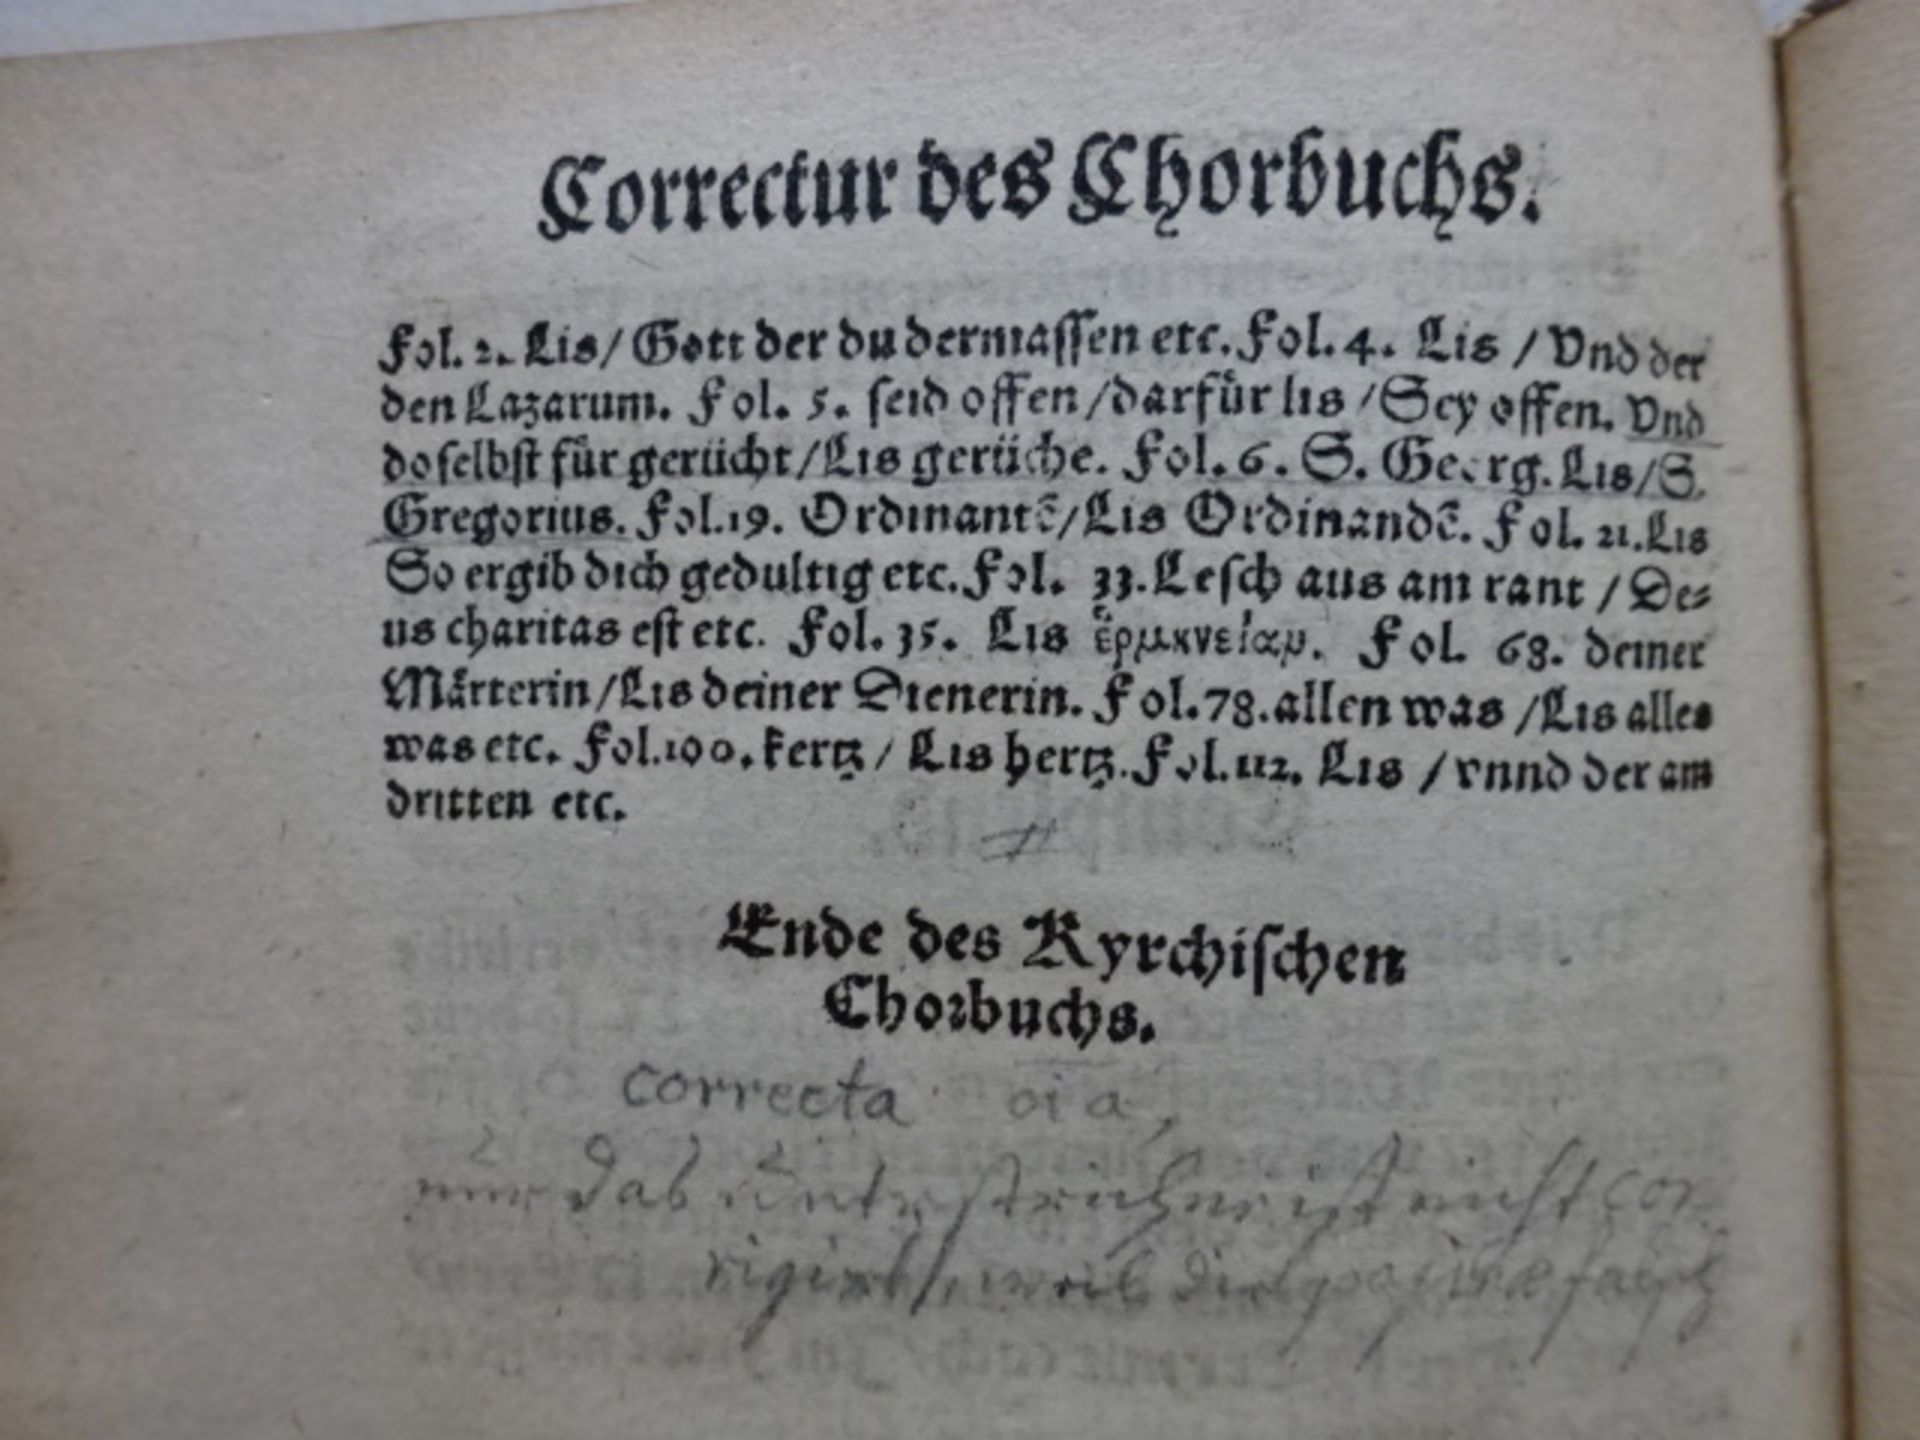 Correctur des Chorbuchs.
Fol. 2. Lis/ Gott der du dermassen etc. Fol. 4. Lis / Vnd der
den Lazarum. Fol. 5. seid offen /darfür lis /Sey offen. Vnd
doselbst für gerücht/Lis gerüche. Fol. 6. S. Georg. Lis/S.
Gregorius. Fol. 19. Ordinantē/Lis Ordinandē. Fol. 21. Lis
So ergib dich gedultig etc. Fol. 33. Lesch aus am rant / De⸗
us charitas est etc. Fol. 35. Lis ἑρμκνείαμ. Fol. 68. deiner
Märterin/Lis deiner Dienerin. Fol. 78. allen was /Lis alles
was etc. Fol. 100. kertz / Lis hertz. Fol. 112. Lis / vnnd der am
dritten etc.
Ende des Kyrchischen
Chorbuchs.
correcta oia,
nur das Unterstrichne ist nicht cor
rigirt, weil die pagina fehlt